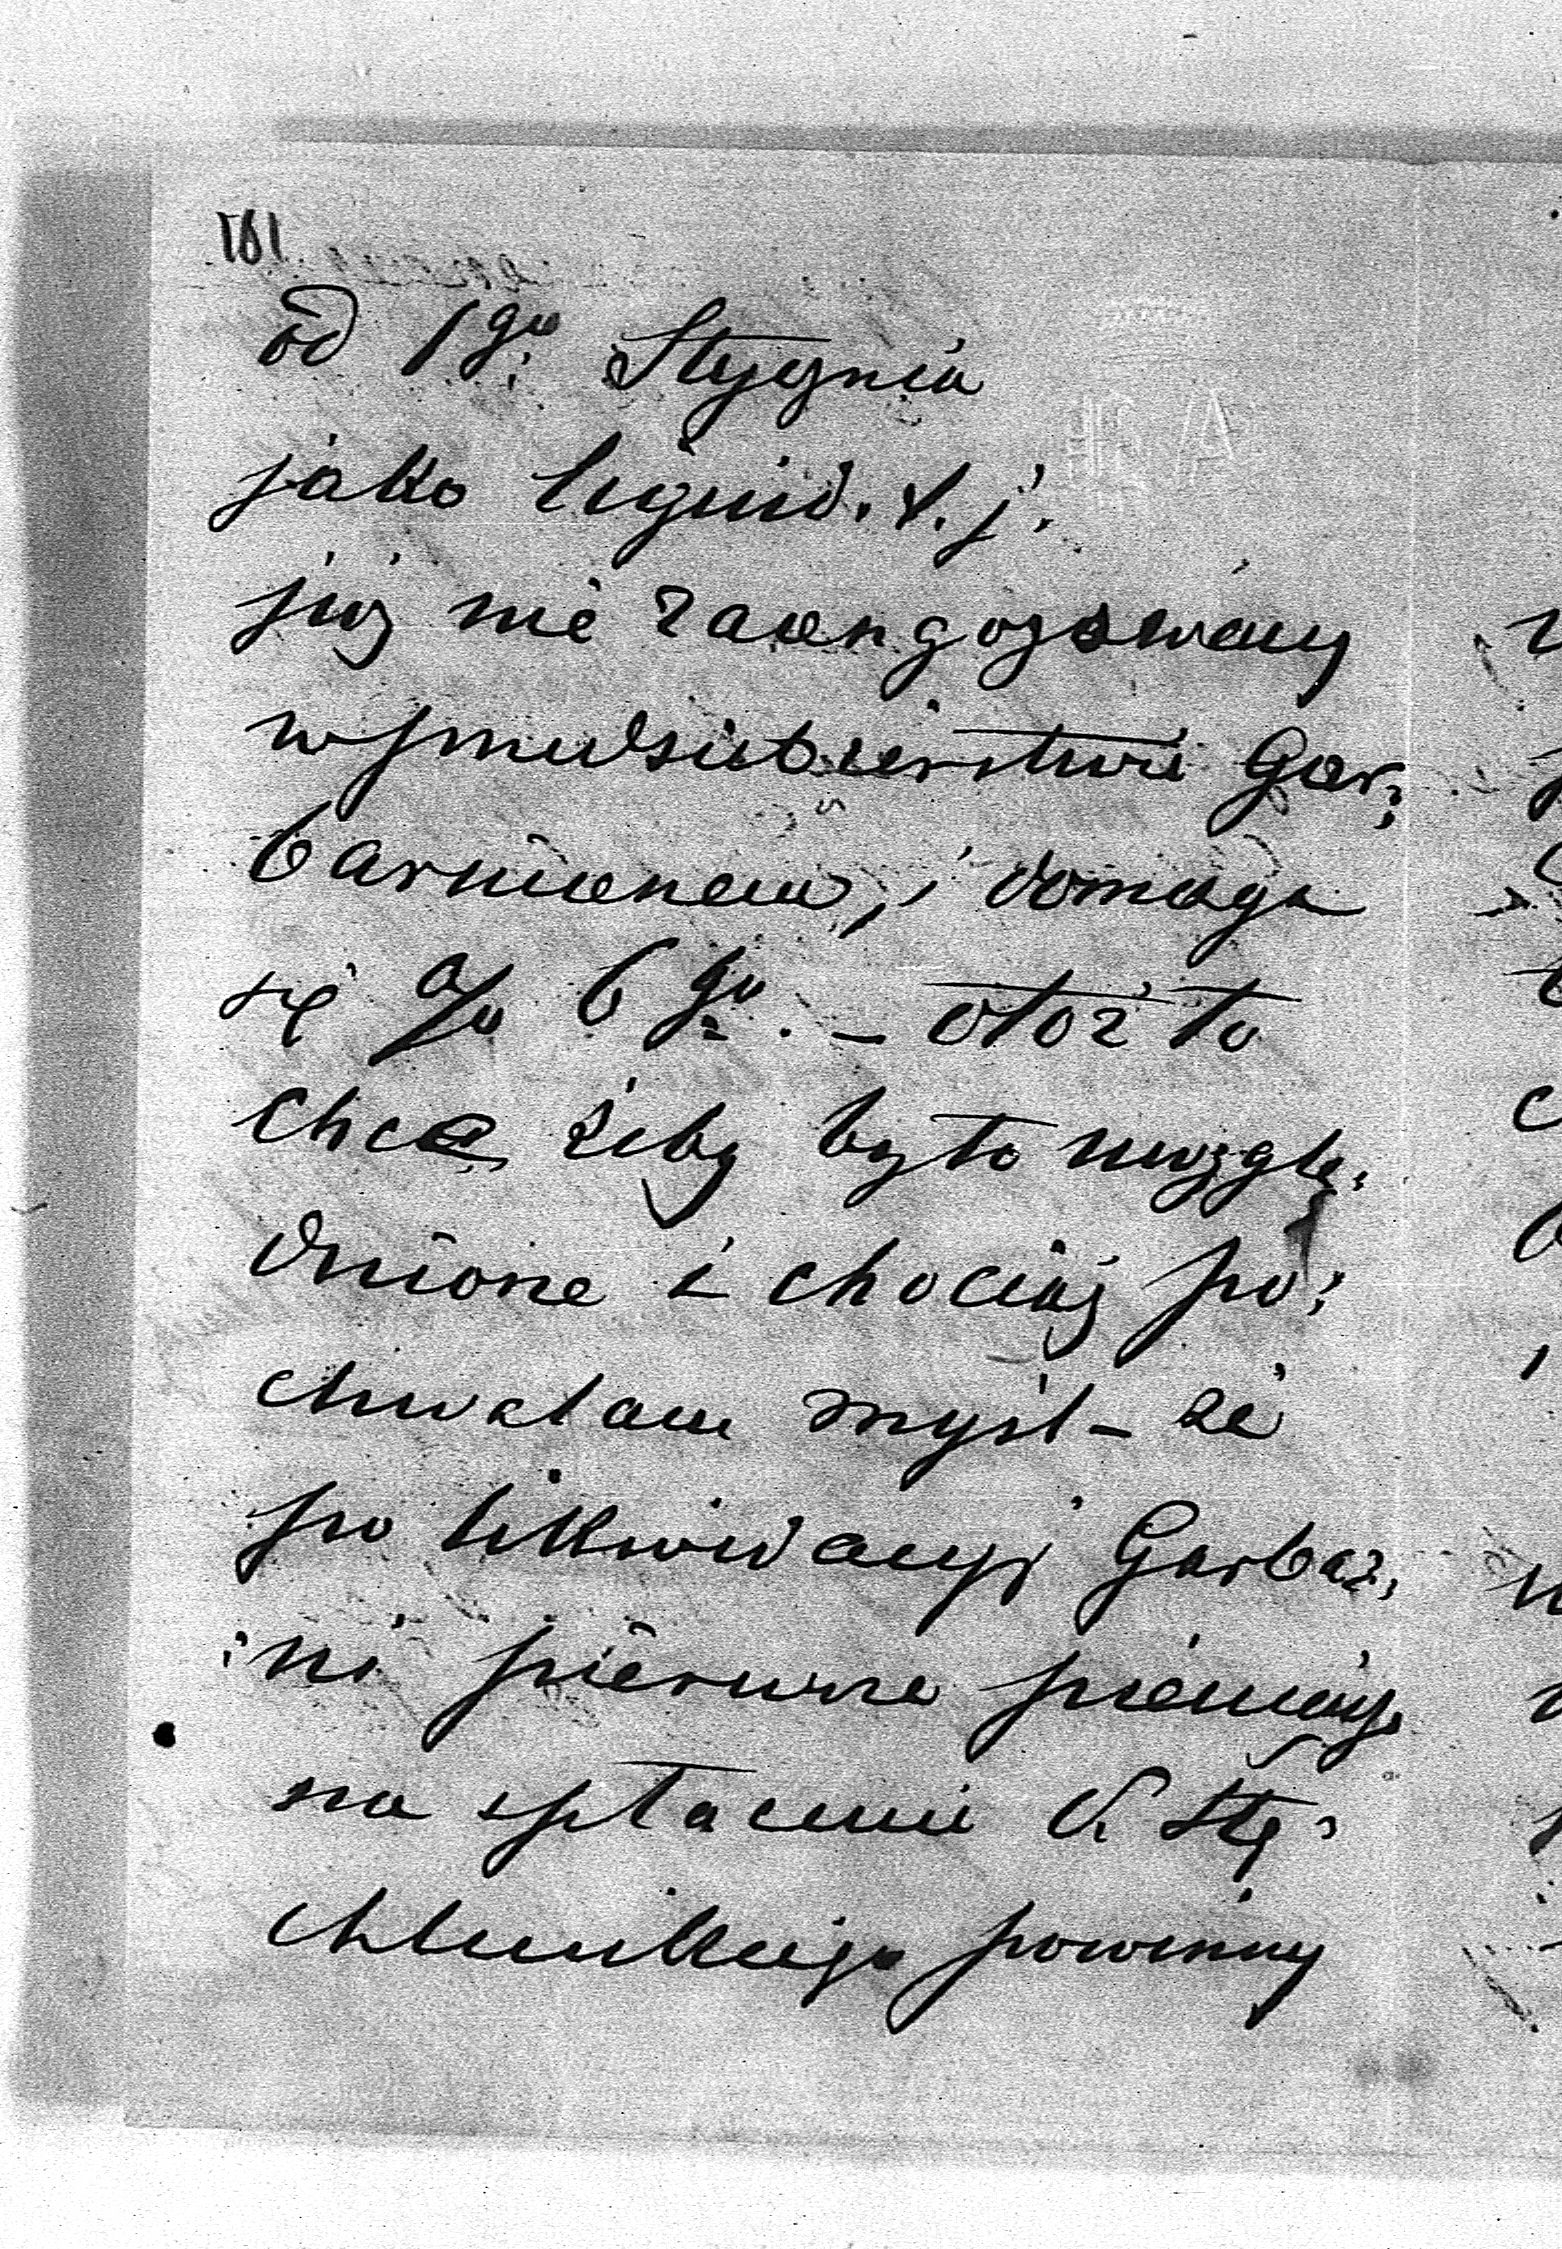 od 1go Stycznia
jako liquid. t. j.
już nie zaangażowany
w przedsiebierstwie Gar;
barnianem, i domaga
się % 6go. – otóż to
chcę żeby było uwzglę;
dnione i chociaż po;
chwalam myśl – że
po likwidacyi Garbar;
;ni pierwsze pieniądze
na spłacenie
powinny